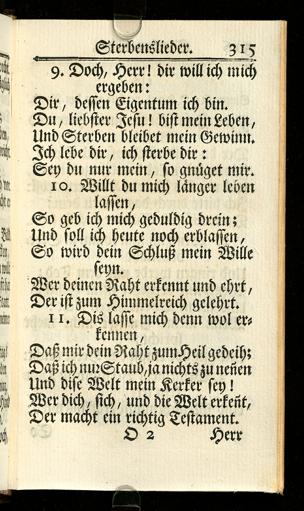 Sterbenslieder. 315
9. Doch, Herr! dir will ich mich
ergeben:
Dir, dessen Eigentum ich bin.
Du, liebster Jesu! bist mein Leben,
Und Sterben bleibet mein Gewinn.
Ich lebe dir, ich sterbe dir:
Sey du nur mein, so gnüget mir.
10. Willt du mich länger leben
lassen,
So geb ich mich geduldig drein;
Und soll ich heute noch erblassen,
So wird dein Schluß mein Wille
seyn.
Wer deinen Raht erkennt und ehrt,
Der ist zum Himmelreich gelehrt.
11. Dis lasse mich denn wol er-
kennen,
Daß mir dein Raht zum Heil gedeih;
Daß ich nur Staub, ja nichts zu neñen
Und dise Welt mein Kerker sey!
Wer dich, sich, und die Welt erkeñt,
Der macht ein richtig Testament.
O 2 Herr